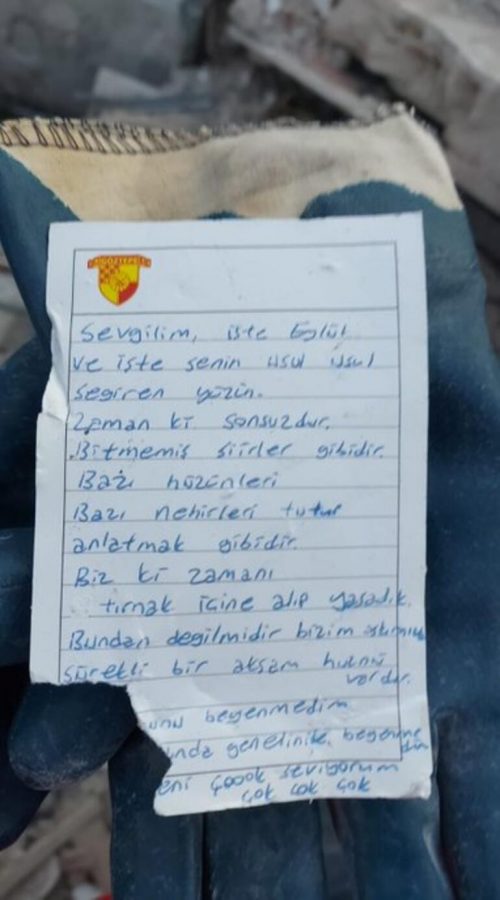 GÖZTEPE
Sevgilim, işte Eylül
ve işte senin usul usul
segiren yüzün.
Zaman ki sonsuzdur.
Bitmemiş şiirler gibidir.
Bazı hüzünleri
Bazı nehirleri tutup
anlatmak gibidir.
Biz ki zamanı
tırnak içine alıp yaşadık.
Bundan değilmidir bizim aşkımız
sürekli bir akşam hüznü
vardır.
unu beğenmedim
ında
eni çoook seviyorum
çok çok çok